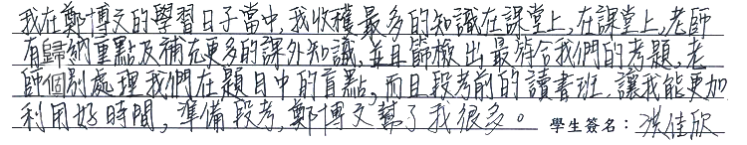 我在鄭博文的學習日子當中,我收穫最多的知識在課堂上,在課堂上,老師
有歸納重點及補充更多的課外知識,並且篩檢出最符合我們的考題,老
師個別處理我們在題目中的盲點,而且段考前的讀書班,讓我能更加
利用好時間,準備段考,鄭博文幫了我很多。 學生簽名:洪佳欣